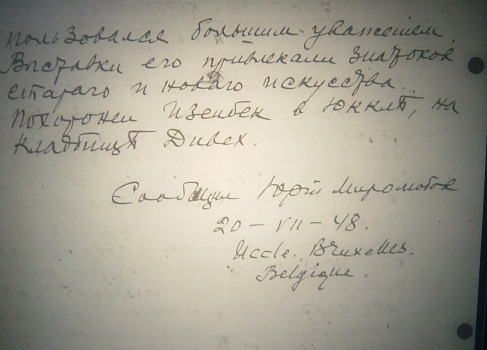 пользовался большим уважением.
Выставки его привлекали знатоков
стараго и новаго искусства.
Похоронен Изенбек в Юккл‍ѣ, на
кладбищѣ Дивех.
Сообщил Юрій Миролюбов
20 - VII - 48.
Uccle. Bruxelles.
Belgique.